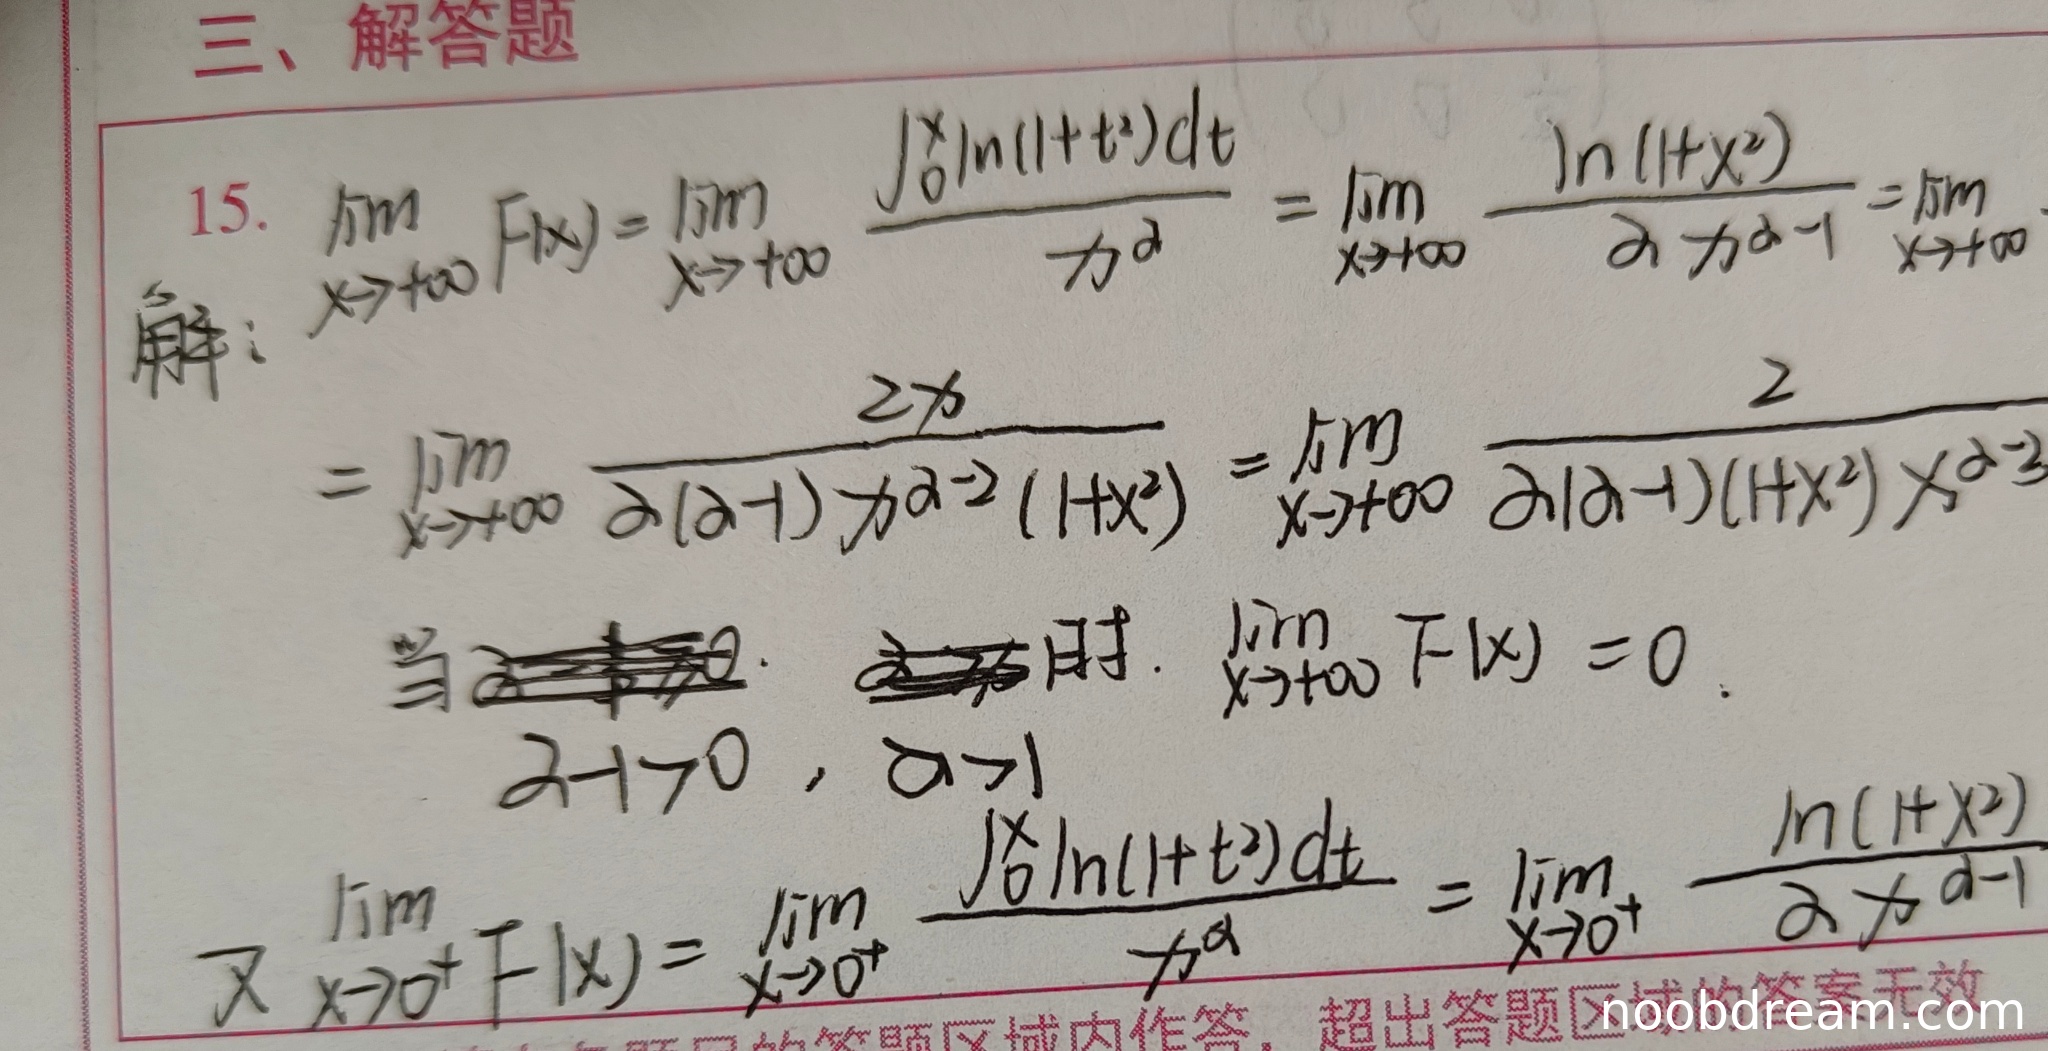 三、解答题
15. lim x→+∞ F(x) = lim x→+∞ ∫₀ˣ ln(1+t²)dt / x^α = lim x→+∞ ln(1+x²) / αx^(α-1) = lim x→+∞
解:
= lim x→+∞ 2x / α(α-1)x^(α-2)(1+x²) = lim x→+∞ 2 / α(α-1)(1+x²)x^(α-3)
当 时. lim x→+∞ F(x) = 0.
α-1>0, α>1
又 lim x→0⁺ F(x) = lim x→0⁺ ∫₀ˣ ln(1+t²)dt / x^α = lim x→0⁺ ln(1+x²) / αx^(α-1)
题目的答题区域内作答,超出答题区域的答案无效
noobdream.com